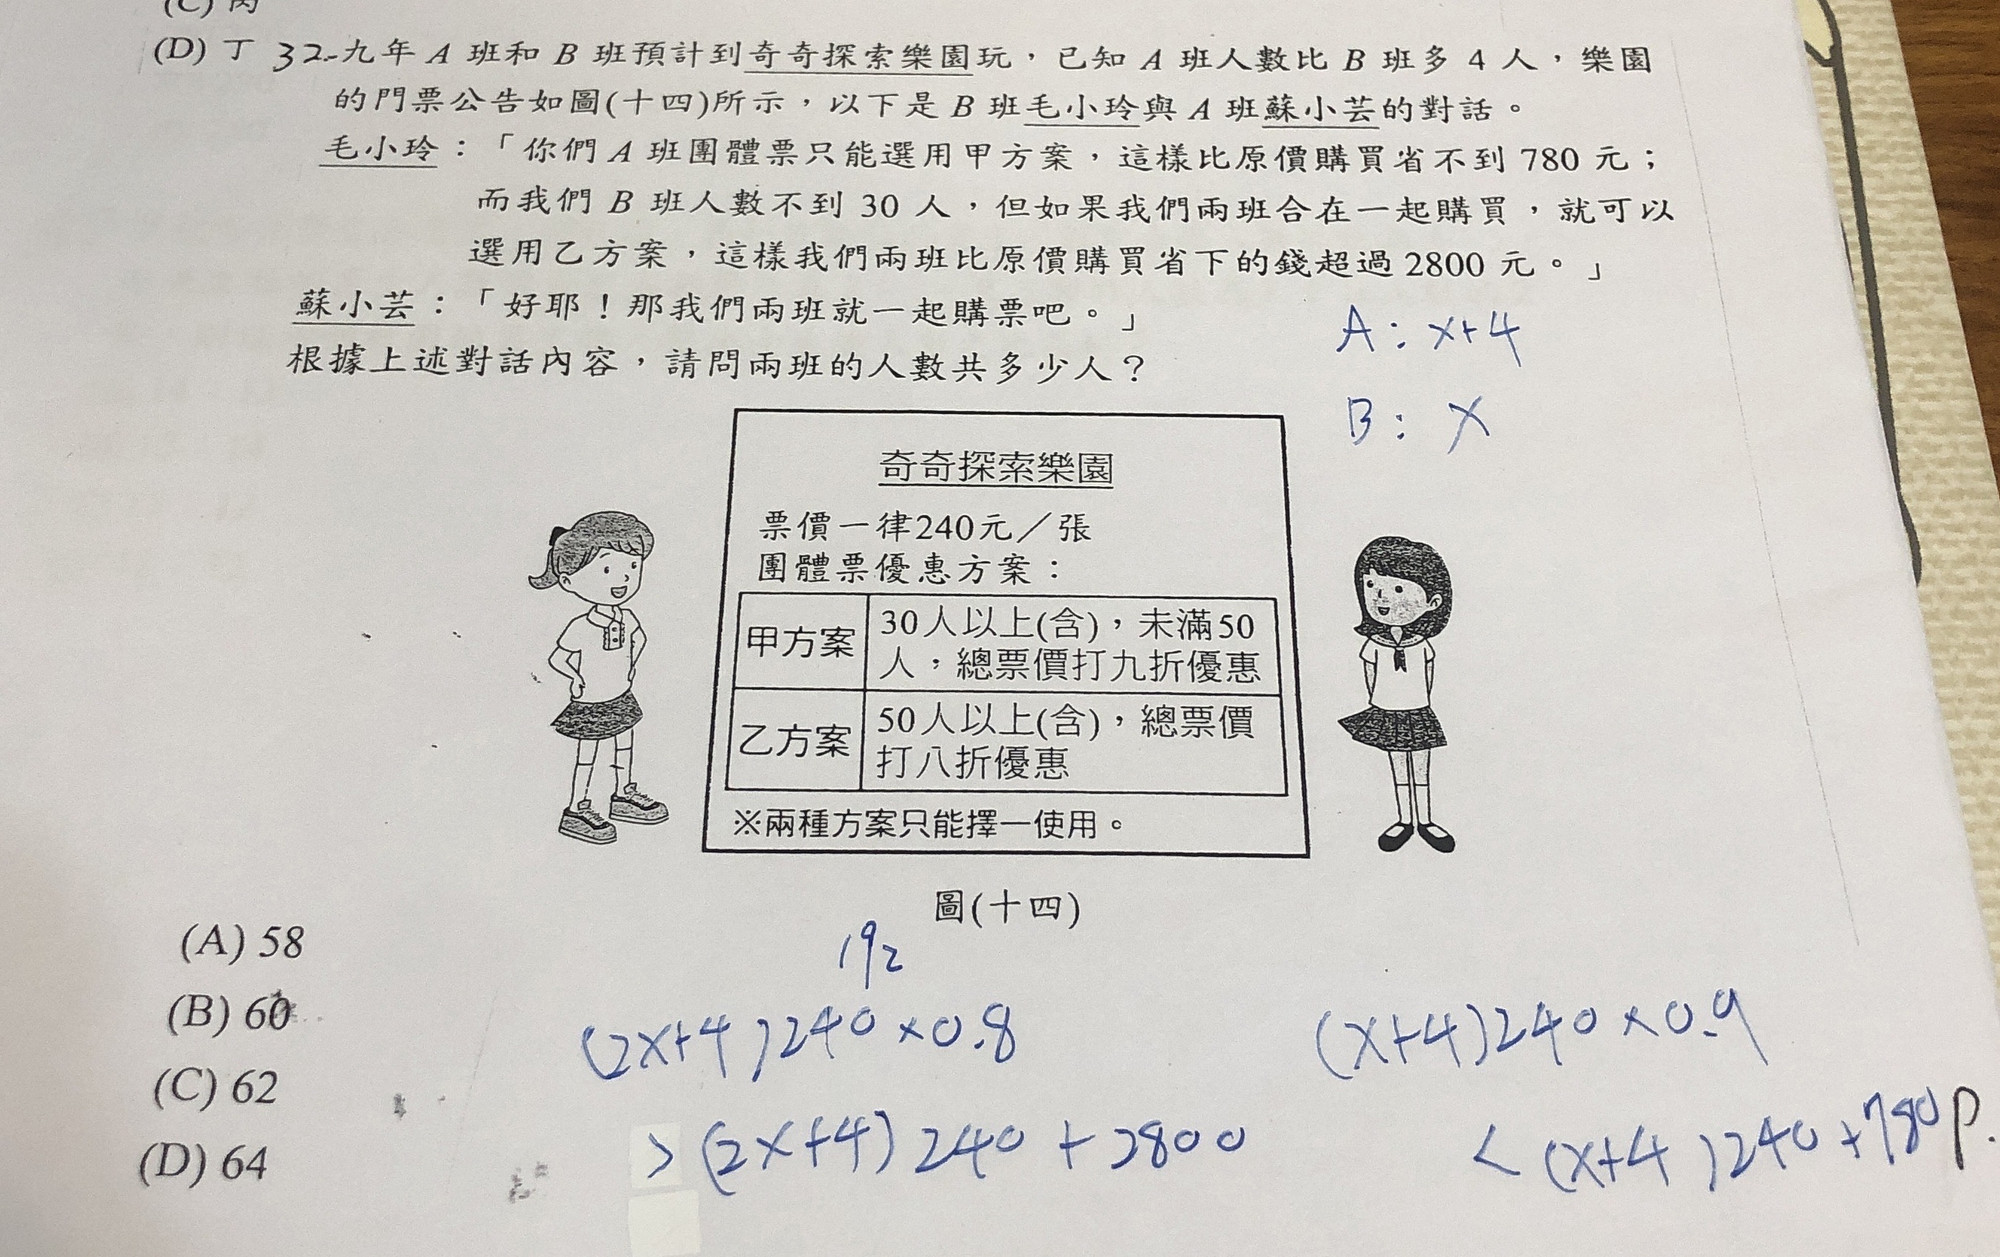 (C) 丙
(D) 丁
32.九年 A 班和 B 班預計到奇奇探索樂園玩，已知 A 班人數比 B 班多 4 人，樂園
的門票公告如圖(十四)所示，以下是 B 班毛小玲與 A 班蘇小芸的對話。
毛小玲：「你們 A 班團體票只能選用甲方案，這樣比原價購買省不到 780 元；
而我們 B 班人數不到 30 人，但如果我們兩班合在一起購買，就可以
選用乙方案，這樣我們兩班比原價購買省下的錢超過 2800 元。」
蘇小芸：「好耶！那我們兩班就一起購票吧。」
根據上述對話內容，請問兩班的人數共多少人？
A: x+4
B: x
奇奇探索樂園
票價一律240元／張
團體票優惠方案：
甲方案
30人以上(含)，未滿50
人，總票價打九折優惠
乙方案
50人以上(含)，總票價
打八折優惠
※兩種方案只能擇一使用。
圖(十四)
(A) 58
(B) 60
(C) 62
(D) 64
192
(2x+4)240×0.8
> (2x+4)240+2800
(x+4)240×0.9
< (x+4)240+780
P.